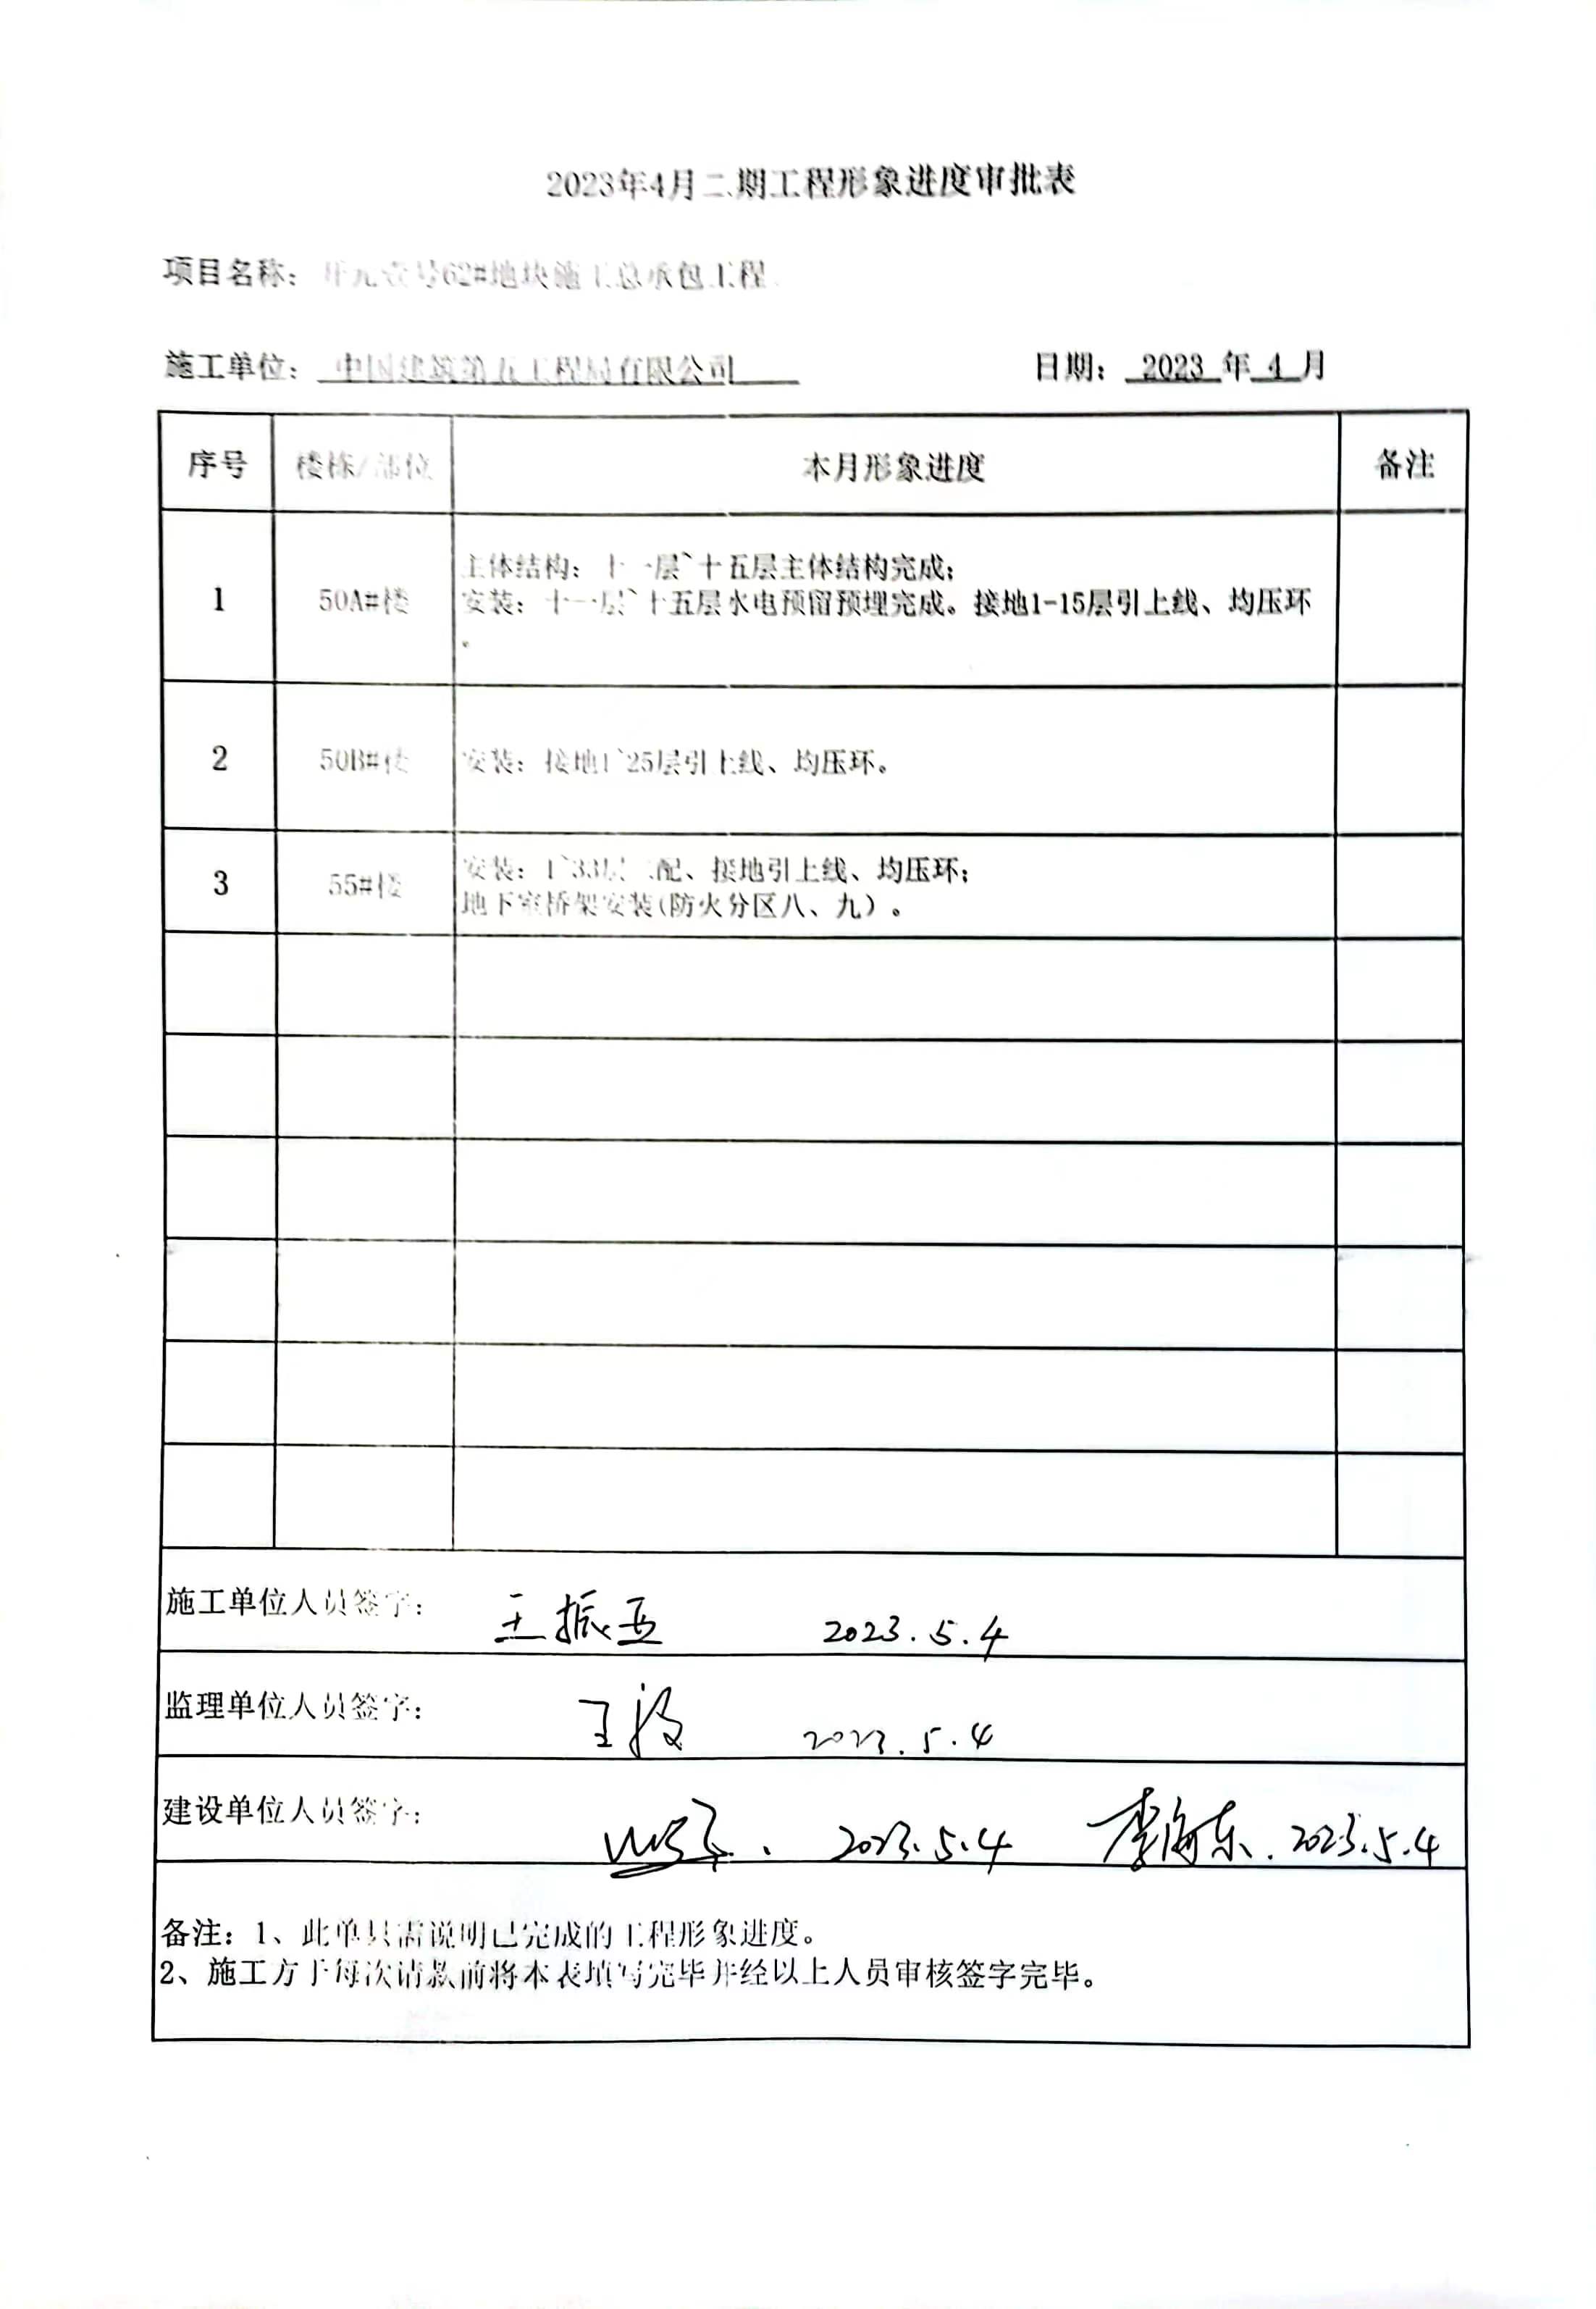 2023年4月二期工程形象进度审批表
项目名称： 开元壹号62#地块施工总承包工程
施工单位： 中国建筑第五工程局有限公司 日期： 2023 年 4 月
序号 楼栋/部位 本月形象进度 备注
1 50A#楼 主体结构：十一层~十五层主体结构完成；
安装：十一层~十五层水电预留预埋完成。接地1-15层引上线、均压环
。
2 50B#楼 安装：接地1~25层引上线、均压环。
3 55#楼 安装：1~33层二配、接地引上线、均压环；
地下室桥架安装(防火分区八、九）。
施工单位人员签字： 王振亚 2023.5.4
监理单位人员签字： 王 2023.5.4
建设单位人员签字： 2023.5.4 李海东.2023.5.4
备注：1、此单只需说明已完成的工程形象进度。
2、施工方于每次请款前将本表填写完毕并经以上人员审核签字完毕。